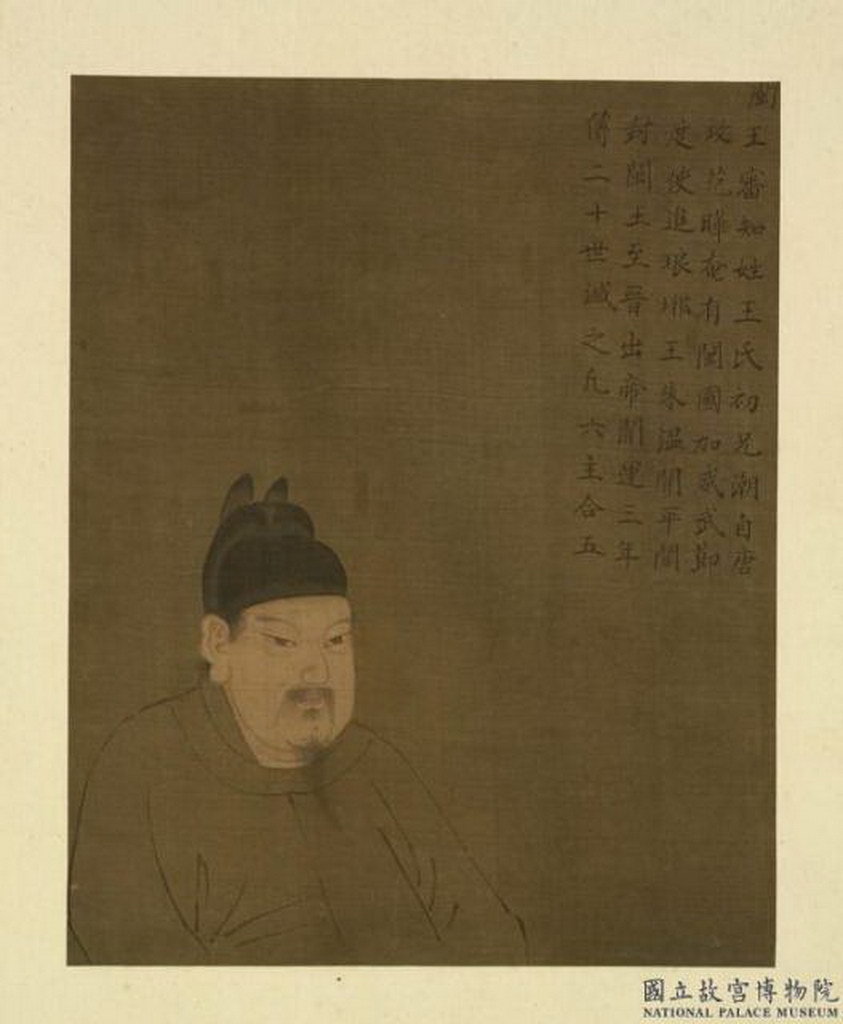 閩王審知姓王氏初兄潮自唐
攻范暉奄有閩國加威武節
度使進琅琊王朱溫開平間
封閩王至晉出帝開運三年
傳二十世滅之凡六主合五
國立故宮博物院
NATIONAL PALACE MUSEUM